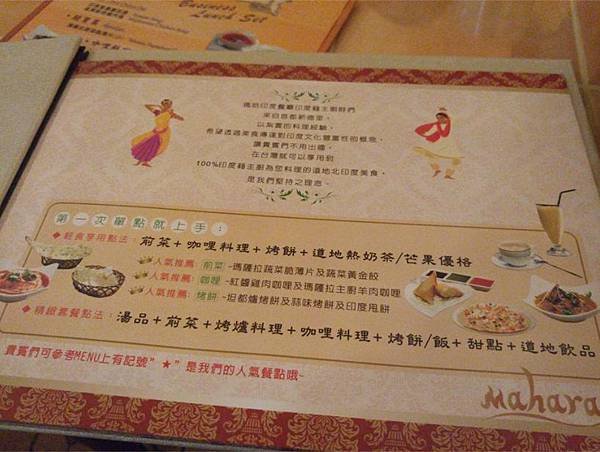 Business
Lunch Set
瑪哈印度餐廳印度籍主廚群們
來自首都新德里，
以紮實的料理經驗，
希望透過美食傳達對印度文化豐富性的概念，
讓貴賓們不用出國，
在台灣就可以享用到
100%印度籍主廚為您料理的道地北印度美食，
是我們堅持之理念。
第一次單點就上手：
◆輕食享用點法：前菜+咖哩料理+烤餅+道地熱奶茶/芒果優格
人氣推薦：前菜-瑪薩拉蔬菜脆薄片及蔬菜黃金餃
人氣推薦：咖哩-紅醬雞肉咖哩及瑪薩拉主廚羊肉咖哩
人氣推薦：烤餅-坦都爐烤餅及蒜味烤餅及印度甩餅
◆精緻套餐點法：湯品+前菜+烤爐料理+咖哩料理+烤餅/飯+甜點+道地飲品
貴賓們可參考MENU上有記號"★"是我們的人氣餐點哦~
Mahara